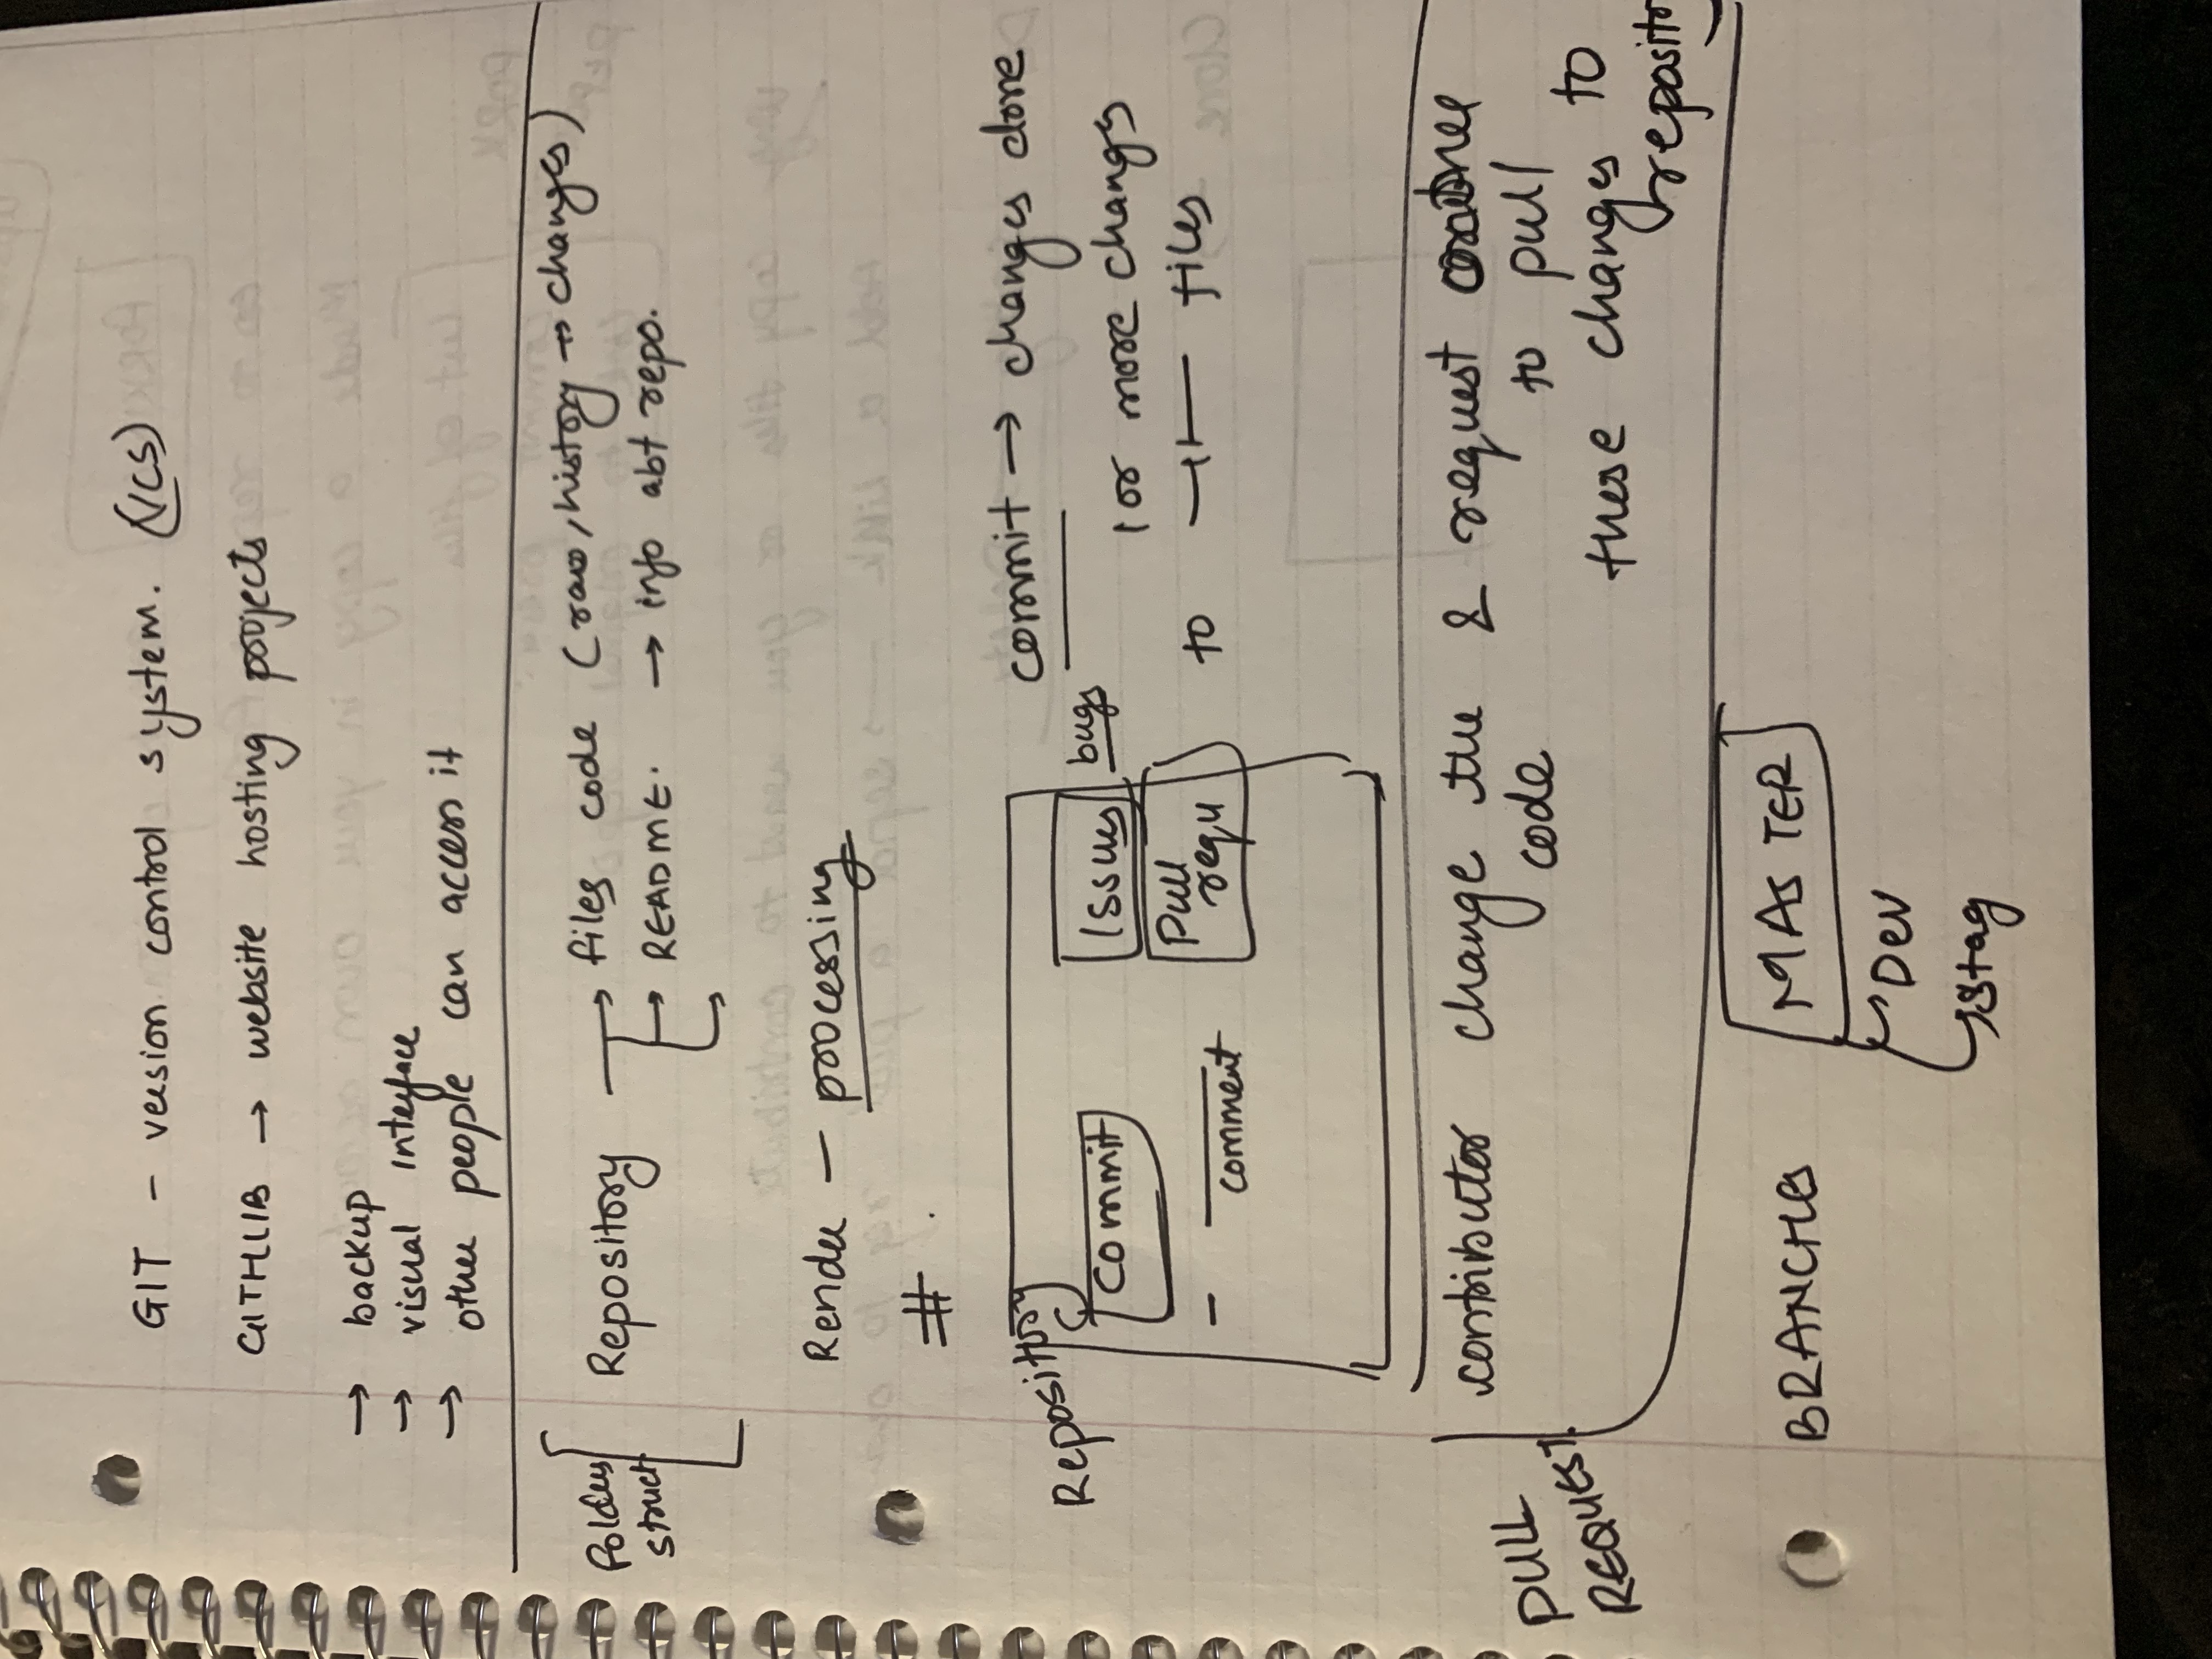 GIT - version control system. (VCS)
GITHUB → website hosting projects
→ backup
→ visual interface
→ other people can access it
Folder struct
Repository → files code (raw, history → changes)
→ README. → info abt repo.
→
Render - processing
#
Repository
commit
Issues
bugs
Pull requ
- comment
commit → changes done
1 or more changes
to files
PULL REQUEST
contributor change the & request
code to pull
these changes to
reposito
BRANCHES
MASTER
Dev
Stag